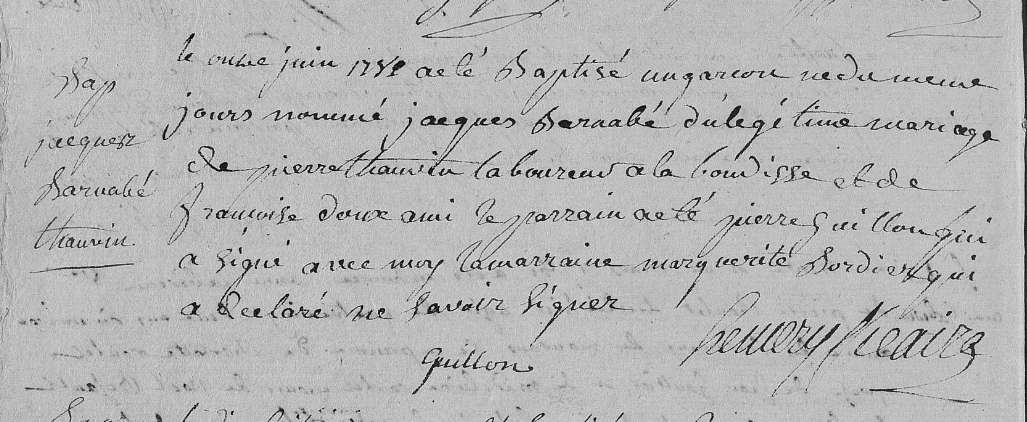 Bap
jacques
Barnabé
thauvin
le onze juin 1751 a eté Baptisé un garcon né du meme
jours nommé jacques Barnabé du legétime mariage
de pierre thauvin laboureur a la bourdisse et de
francoise doux ami le parrain a eté pierre Guillon qui
a signé avec moy la marraine marguerite Bordier qui
a declaré ne savoir signer
Guillon
hemery Vicaire